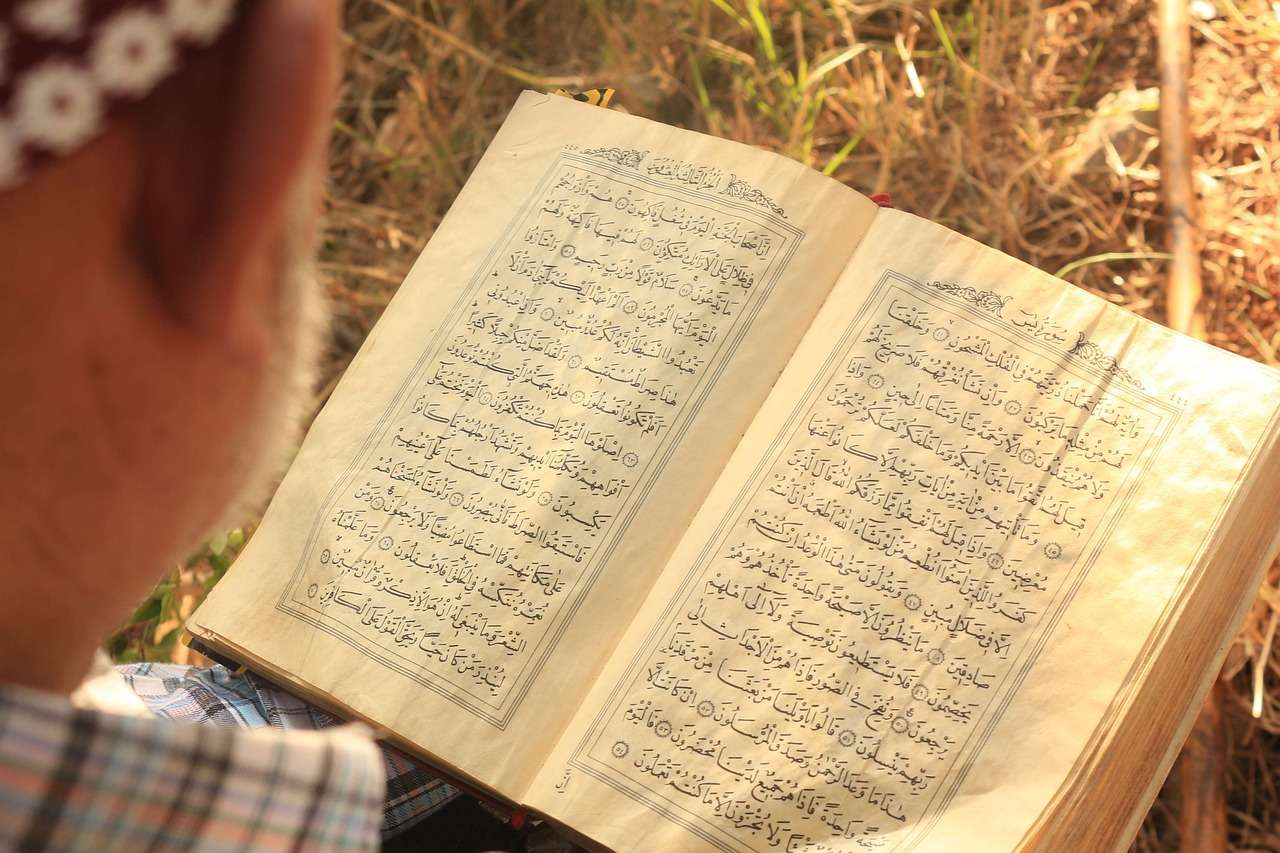 سُورَةُ يٰسٓ
٤٤٤
وَاٰيَةٌ لَهُمْ اَنَّا حَمَلْنَا ذُرِّيَّتَهُمْ فِي الْفُلْكِ الْمَشْحُونِ ٤١ وَخَلَقْنَا
لَهُمْ مِنْ مِثْلِهِ مَا يَرْكَبُونَ ٤٢ وَاِنْ نَشَأْ نُغْرِقْهُمْ فَلَا صَرِيخَ لَهُمْ
وَلَا هُمْ يُنْقَذُونَ ٤٣ اِلَّا رَحْمَةً مِنَّا وَمَتَاعًا اِلٰى حِينٍ ٤٤ وَاِذَا
قِيلَ لَهُمُ اتَّقُوا مَا بَيْنَ اَيْدِيكُمْ وَمَا خَلْفَكُمْ لَعَلَّكُمْ تُرْحَمُونَ
٤٥ وَمَا تَأْتِيهِمْ مِنْ اٰيَةٍ مِنْ اٰيَاتِ رَبِّهِمْ اِلَّا كَانُوا عَنْهَا
مُعْرِضِينَ ٤٦ وَاِذَا قِيلَ لَهُمْ اَنْفِقُوا مِمَّا رَزَقَكُمُ اللّٰهُ قَالَ الَّذِينَ
كَفَرُوا لِلَّذِينَ اٰمَنُوا اَنُطْعِمُ مَنْ لَوْ يَشَاءُ اللّٰهُ اَطْعَمَهُ اِنْ اَنْتُمْ
اِلَّا فِي ضَلَالٍ مُبِينٍ ٤٧ وَيَقُولُونَ مَتٰى هٰذَا الْوَعْدُ اِنْ كُنْتُمْ
صَادِقِينَ ٤٨ مَا يَنْظُرُونَ اِلَّا صَيْحَةً وَاحِدَةً تَأْخُذُهُمْ وَهُمْ
يَخِصِّمُونَ ٤٩ فَلَا يَسْتَطِيعُونَ تَوْصِيَةً وَلَا اِلٰى اَهْلِهِمْ
يَرْجِعُونَ ٥٠ وَنُفِخَ فِي الصُّورِ فَاِذَا هُمْ مِنَ الْاَجْدَاثِ اِلٰى
رَبِّهِمْ يَنْسِلُونَ ٥١ قَالُوا يَا وَيْلَنَا مَنْ بَعَثَنَا مِنْ مَرْقَدِنَا
هٰذَا مَا وَعَدَ الرَّحْمٰنُ وَصَدَقَ الْمُرْسَلُونَ ٥٢ اِنْ كَانَتْ اِلَّا
صَيْحَةً وَاحِدَةً فَاِذَا هُمْ جَمِيعٌ لَدَيْنَا مُحْضَرُونَ ٥٣ فَالْيَوْمَ
وَلَا تُجْزَوْنَ اِلَّا مَا كُنْتُمْ تَعْمَلُونَ ٥٤
اِنَّ
اَلْجُزْءُ الثَّالِثُ وَالْعِشْرُونَ
٤٤٥
اِنَّ اَصْحَابَ الْجَنَّةِ الْيَوْمَ فِي شُغُلٍ فَاكِهُونَ ٥٥ هُمْ وَاَزْوَاجُهُمْ
فِي ظِلَالٍ عَلَى الْاَرَائِكِ مُتَّكِؤُنَ ٥٦ لَهُمْ فِيهَا فَاكِهَةٌ وَلَهُمْ
مَا يَدَّعُونَ ٥٧ سَلَامٌ قَوْلًا مِنْ رَبٍّ رَحِيمٍ ٥٨ وَامْتَازُوا
الْيَوْمَ اَيُّهَا الْمُجْرِمُونَ ٥٩ اَلَمْ اَعْهَدْ اِلَيْكُمْ يَا بَنِي اٰدَمَ اَنْ لَا
تَعْبُدُوا الشَّيْطَانَ اِنَّهُ لَكُمْ عَدُوٌّ مُبِينٌ ٦٠ وَاَنِ اعْبُدُونِي
هٰذَا صِرَاطٌ مُسْتَقِيمٌ ٦١ وَلَقَدْ اَضَلَّ مِنْكُمْ جِبِلًّا كَثِيرًا
اَفَلَمْ تَكُونُوا تَعْقِلُونَ ٦٢ هٰذِهِ جَهَنَّمُ الَّتِي كُنْتُمْ تُوعَدُونَ
٦٣ اِصْلَوْهَا الْيَوْمَ بِمَا كُنْتُمْ تَكْفُرُونَ ٦٤ اَلْيَوْمَ نَخْتِمُ عَلٰى
اَفْوَاهِهِمْ وَتُكَلِّمُنَا اَيْدِيهِمْ وَتَشْهَدُ اَرْجُلُهُمْ بِمَا كَانُوا
يَكْسِبُونَ ٦٥ وَلَوْ نَشَاءُ لَطَمَسْنَا عَلٰى اَعْيُنِهِمْ
فَاسْتَبَقُوا الصِّرَاطَ فَاَنّٰى يُبْصِرُونَ ٦٦ وَلَوْ نَشَاءُ لَمَسَخْنَاهُمْ
عَلٰى مَكَانَتِهِمْ فَمَا اسْتَطَاعُوا مُضِيًّا وَلَا يَرْجِعُونَ ٦٧ وَمَنْ
نُعَمِّرْهُ نُنَكِّسْهُ فِي الْخَلْقِ اَفَلَا يَعْقِلُونَ ٦٨ وَمَا عَلَّمْنَاهُ
الشِّعْرَ وَمَا يَنْبَغِي لَهُ اِنْ هُوَ اِلَّا ذِكْرٌ وَقُرْاٰنٌ مُبِينٌ ٦٩
لِيُنْذِرَ مَنْ كَانَ حَيًّا وَيَحِقَّ الْقَوْلُ عَلَى الْكَافِرِينَ ٧٠